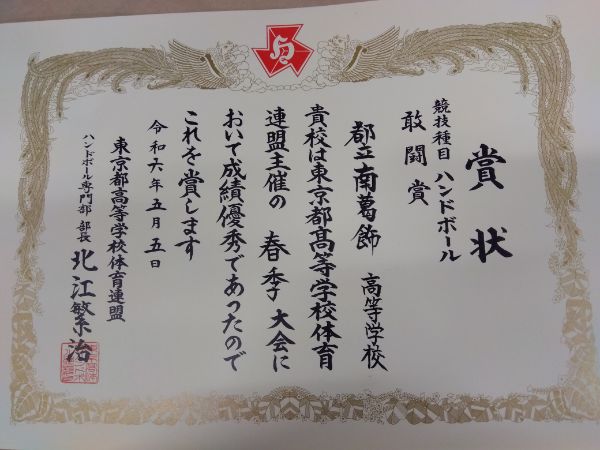 賞状
競技種目 ハンドボール
敢闘賞
都立南葛飾 高等学校
貴校は東京都高等学校体育
連盟主催の 春季大会に
おいて成績優秀であったので
これを賞します
令和六年五月五日
東京都高等学校体育連盟
ハンドボール専門部 部長 北江繁治